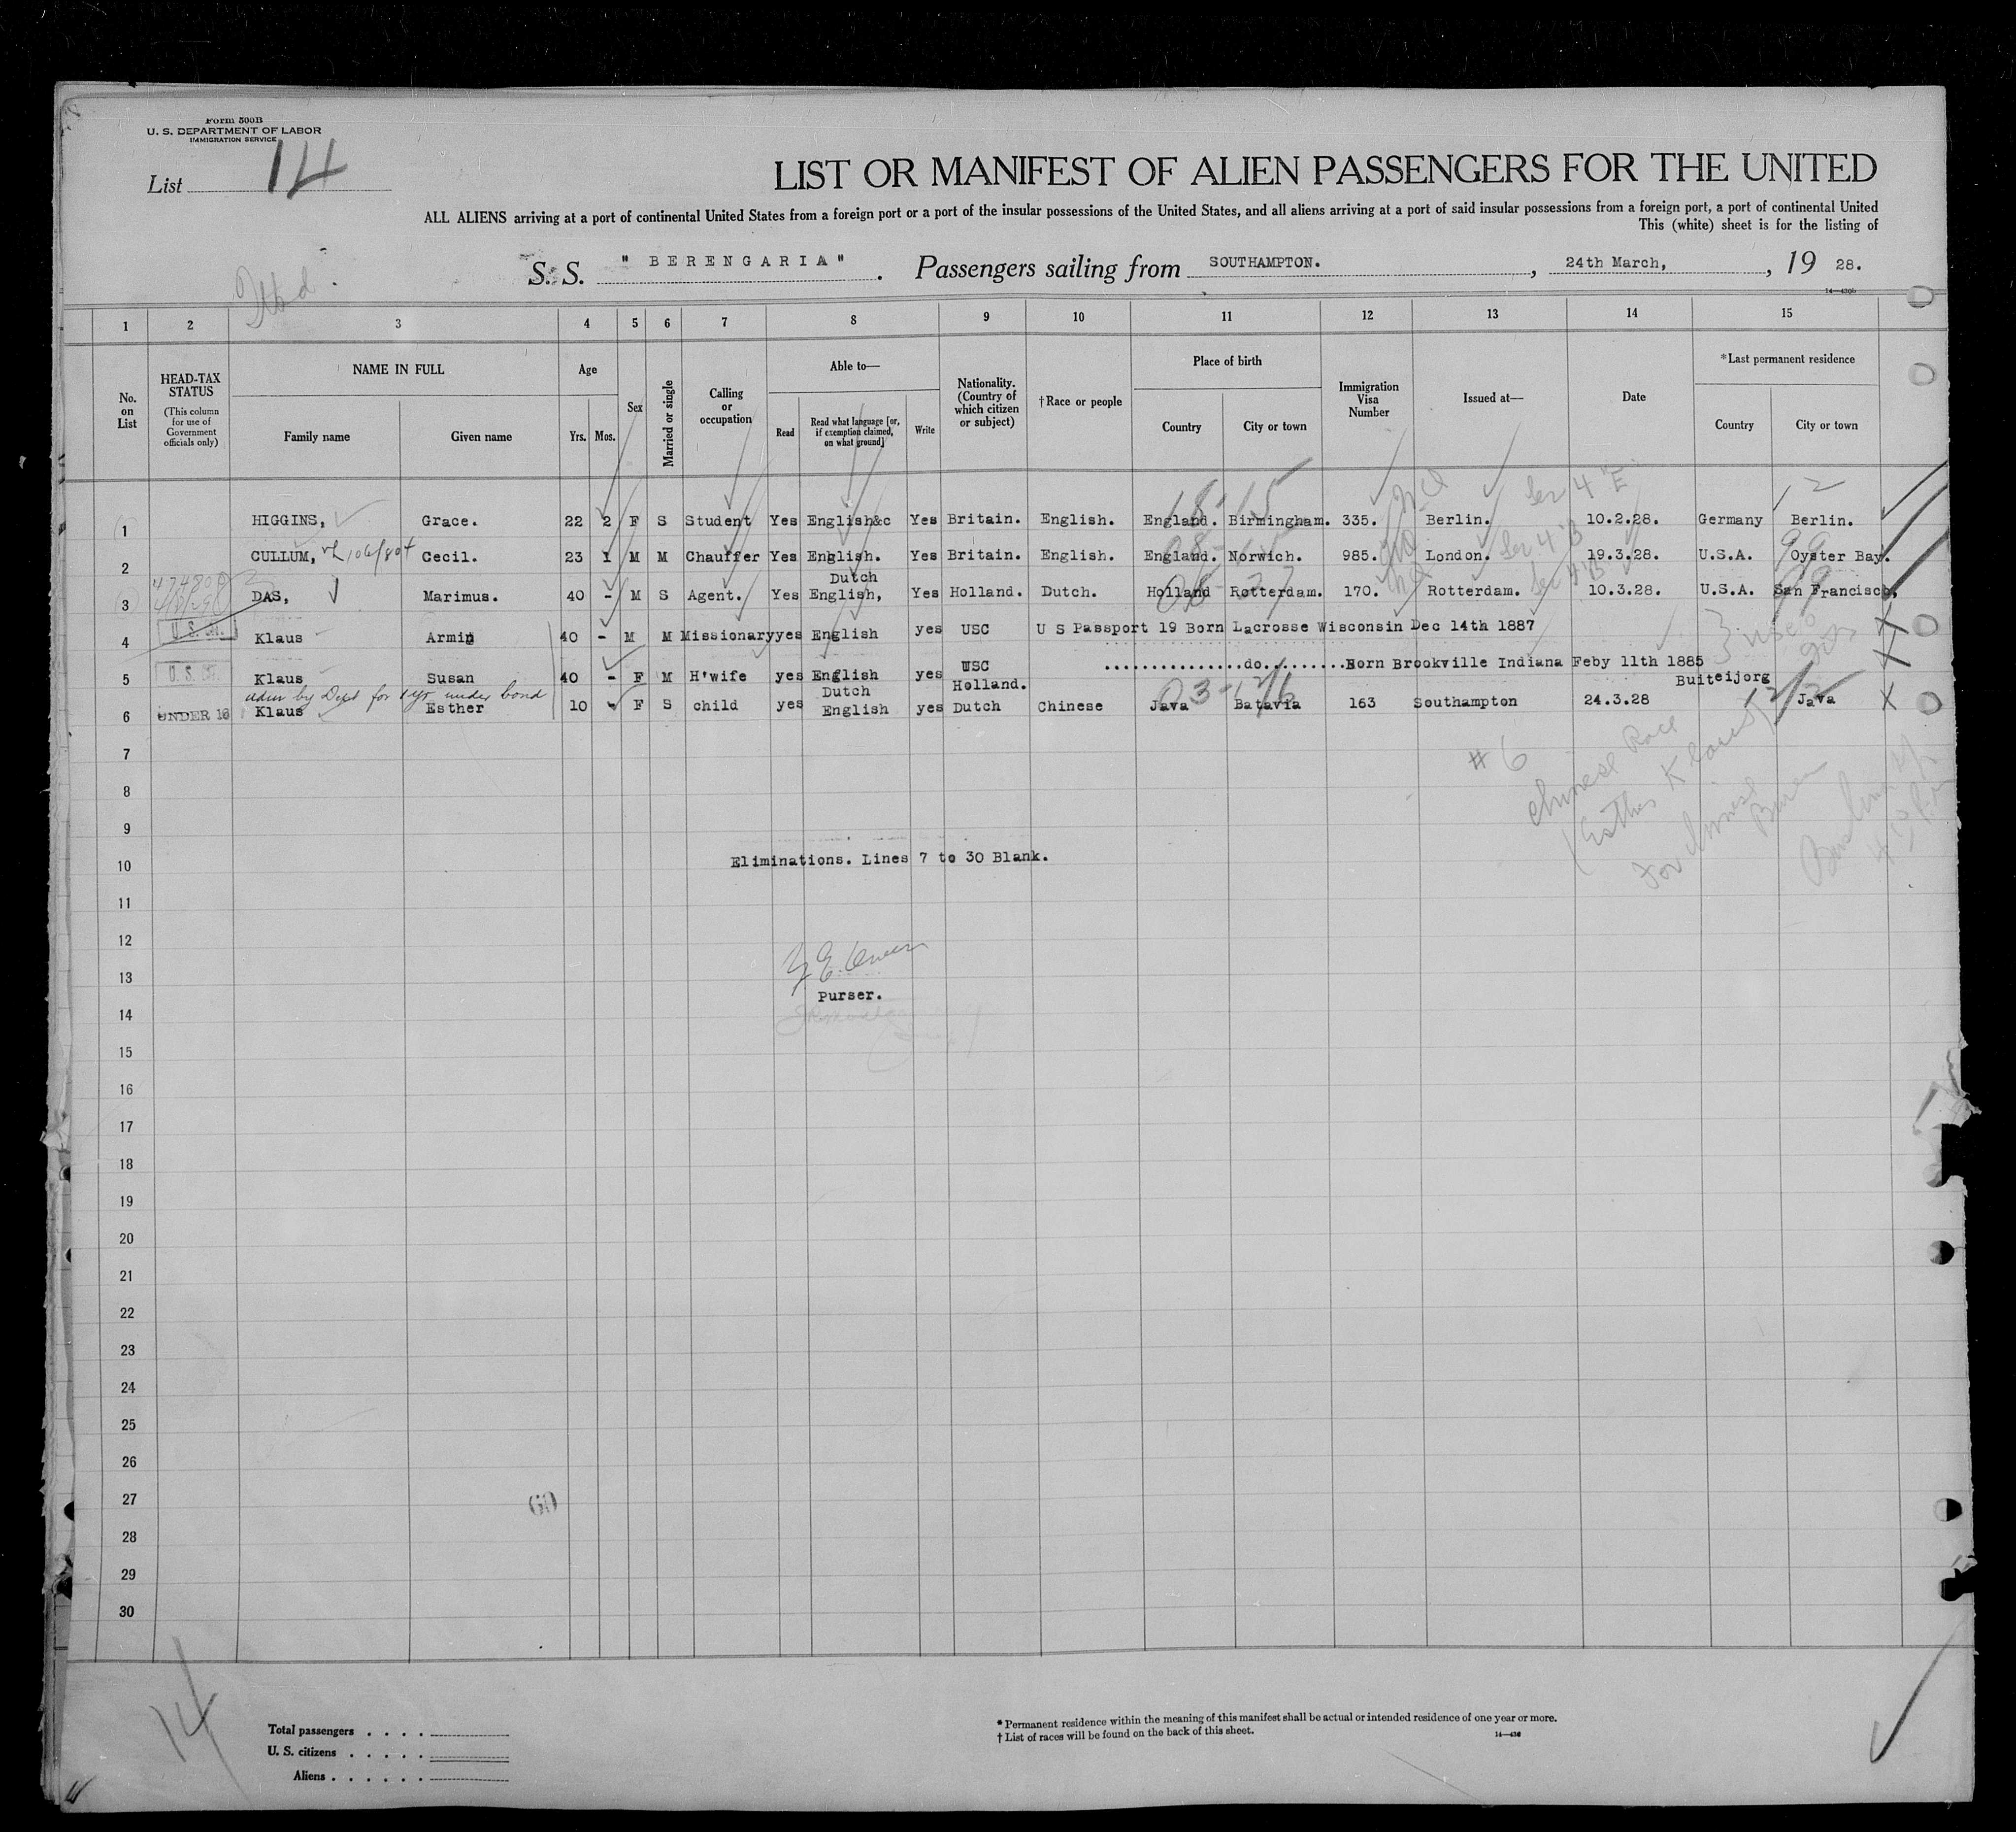 Form 500B
U. S. DEPARTMENT OF LABOR
IMMIGRATION SERVICE
List 14
LIST OR MANIFEST OF ALIEN PASSENGERS FOR THE UNITED
ALL ALIENS arriving at a port of continental United States from a foreign port or a port of the insular possessions of the United States, and all aliens arriving at a port of said insular possessions from a foreign port, a port of continental United
This (white) sheet is for the listing of
S. S. " BERENGARIA " . Passengers sailing from SOUTHAMPTON. , 24th March, , 19 28.
1 2 3 4 5 6 7 8 9 10 11 12 13 14 15
No. on List
HEAD-TAX STATUS
(This column for use of Government officials only)
NAME IN FULL
Family name
Given name
Age
Yrs.
Mos.
Sex
Married or single
Calling or occupation
Able to—
Read
Read what language [or, if exemption claimed, on what ground]
Write
Nationality. (Country of which citizen or subject)
†Race or people
Place of birth
Country
City or town
Immigration Visa Number
Issued at—
Date
*Last permanent residence
Country
City or town
1 HIGGINS, Grace. 22 2 F S Student Yes English&c Yes Britain. English. England. Birmingham. 335. Berlin. 10.2.28. Germany Berlin.
2 CULLUM, Cecil. 23 1 M M Chauffer Yes English. Yes Britain. English. England. Norwich. 985. London. 19.3.28. U.S.A. Oyster Bay.
3 DAS, Marimus. 40 - M S Agent. Yes Dutch English, Yes Holland. Dutch. Holland Rotterdam. 170. Rotterdam. 10.3.28. U.S.A. San Francisco,
4 Klaus Armin 40 - M M Missionary yes English yes USC U S Passport 19 Born Lacrosse Wisconsin Dec 14th 1887
5 Klaus Susan 40 - F M H'wife yes English yes USC ................do.........Born Brookville Indiana Feby 11th 1885
adm by Dept for 1 yr under bond
6 UNDER 16 Klaus Esther 10 - F S child yes Dutch English yes Holland. Dutch Chinese Java Batavia 163 Southampton 24.3.28 Buiteijorg Java
# 6
Chinese Race
(Esther Klaus)
For Chinese
7
8
9
10 Eliminations. Lines 7 to 30 Blank.
11
12
13
Purser.
14
15
16
17
18
19
20
21
22
23
24
25
26
27
28
29
30
14
Total passengers . . . .
U. S. citizens . . . . .
Aliens . . . . . .
* Permanent residence within the meaning of this manifest shall be actual or intended residence of one year or more.
† List of races will be found on the back of this sheet.